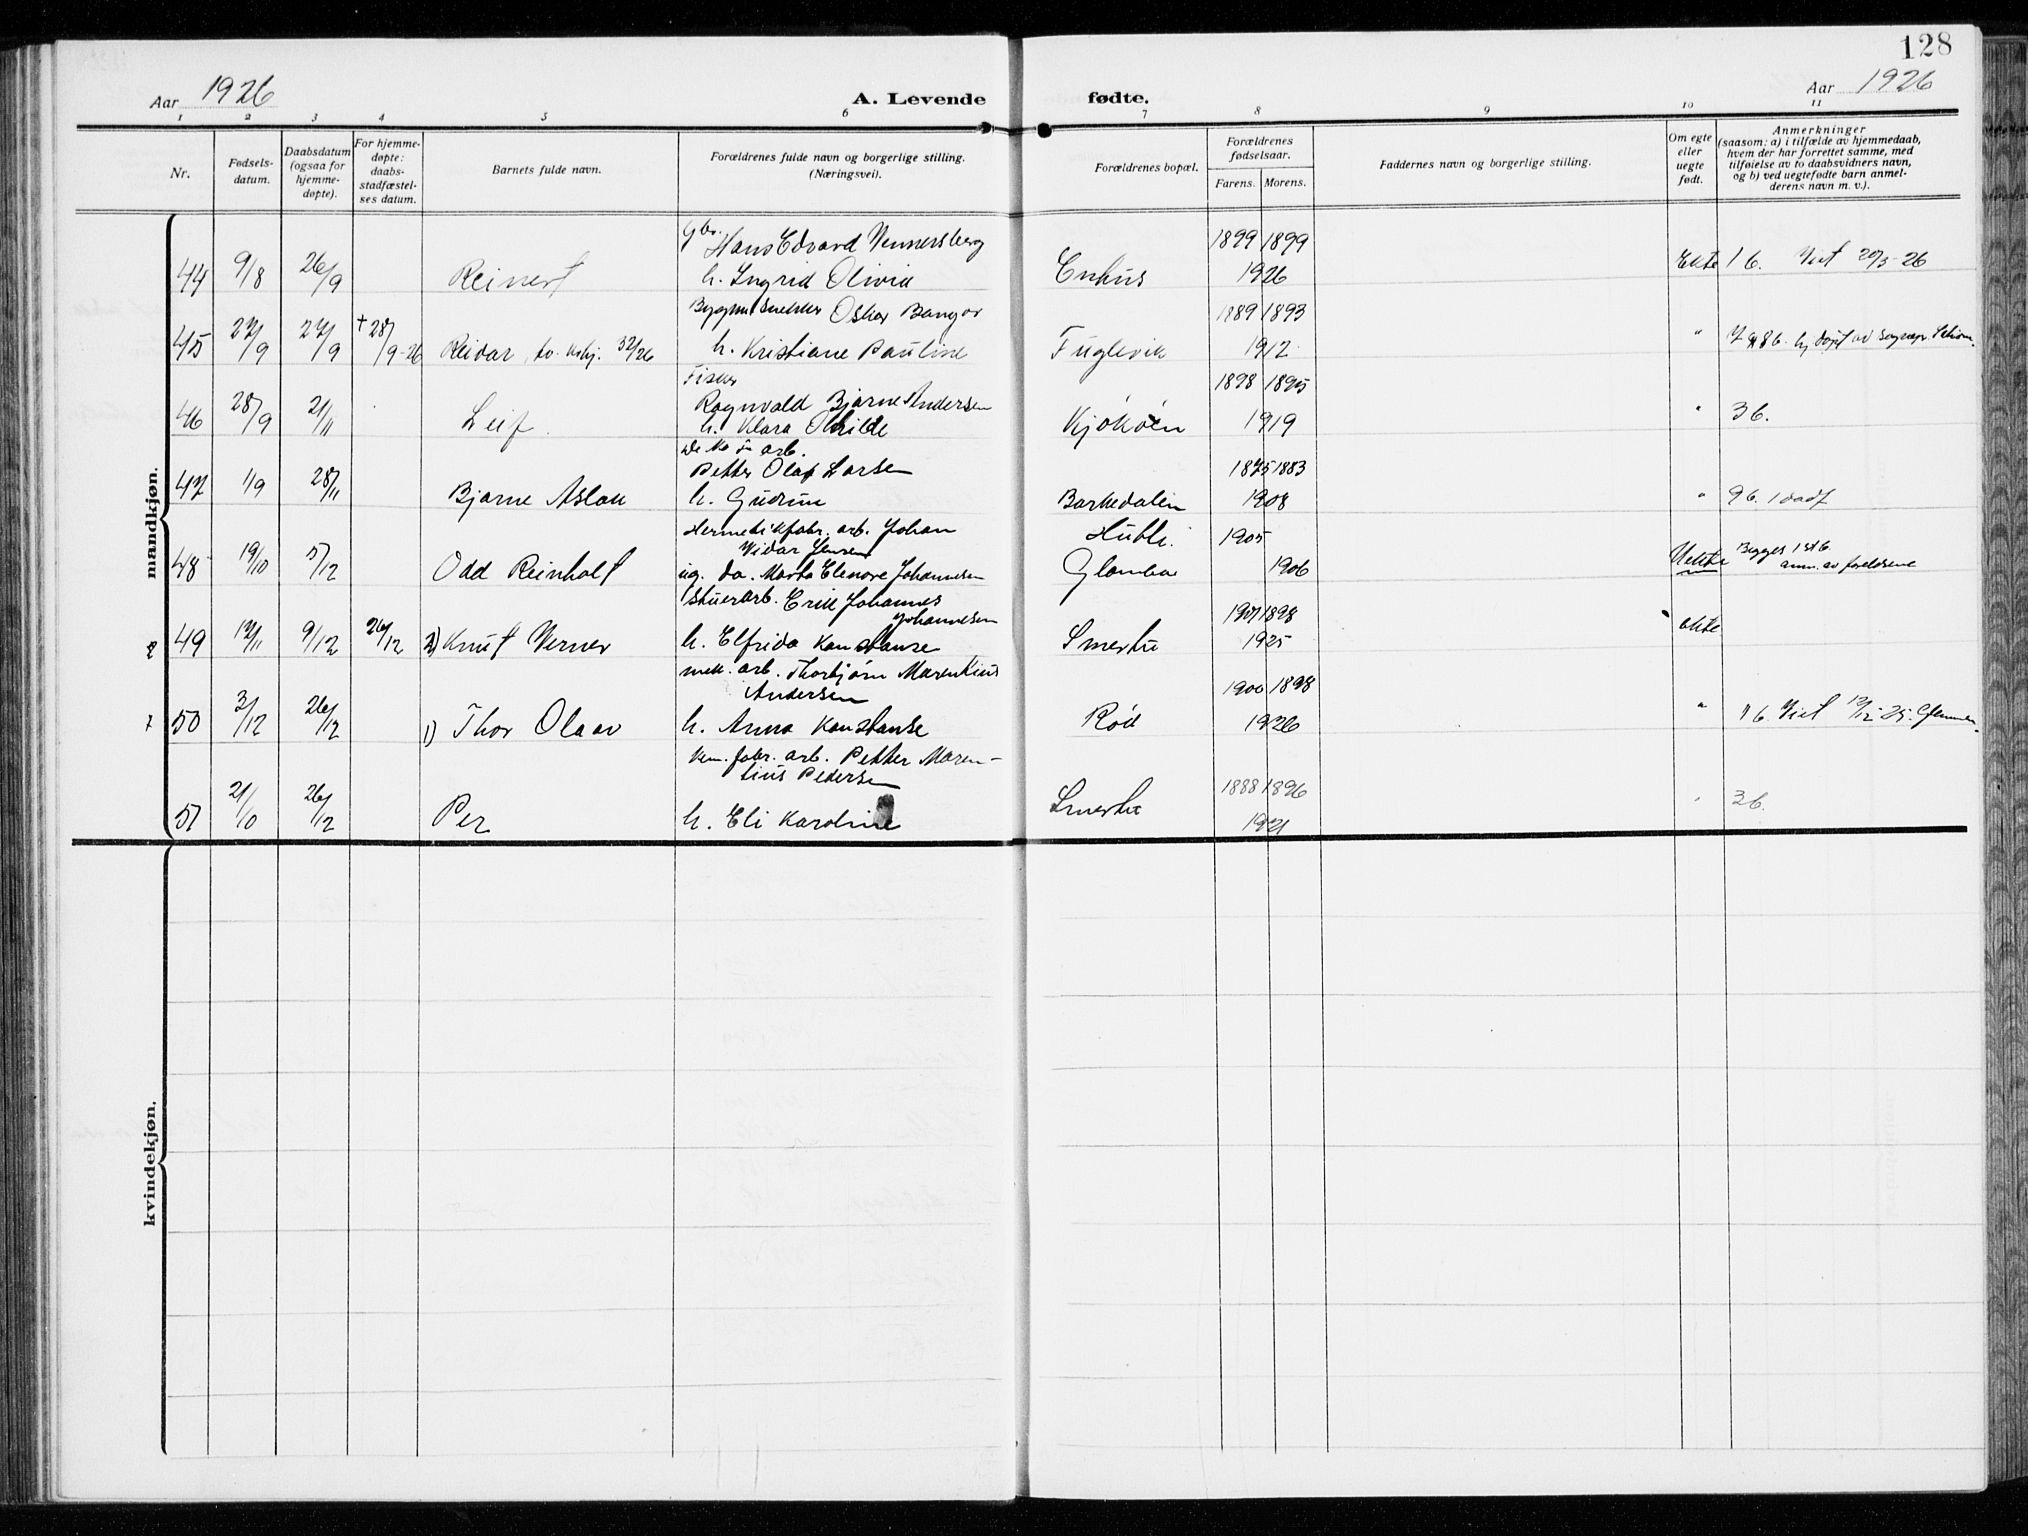 128
Aar 1926
A. Levende fødte.
Aar 1926
1 2 3 4 5 6 7 8 9 10 11
Nr.
Fødsels-
datum.
Daabsdatum
(ogsaa for
hjemme-
døpte).
For hjemme-
døpte:
daabs-
stadfæstel-
ses datum.
Barnets fulde navn.
Forældrenes fulde navn og borgerlige stilling.
(Næringsvei).
Forældrenes bopæl.
Forældrenes
fødselsaar.
Farens. Morens.
Faddernes navn og borgerlige stilling.
Om egte
eller
uegte
født.
Anmerkninger
(saasom: a) i tilfælde av hjemmedaab,
hvem der har forrettet samme, med
tilføielse av to daabsvidners navn,
og b) ved uegtefødte barn anmel-
derens navn m. v.).
mandkjøn.
Gbr. Hans Edvard Vennersberg 1899 1899
44 9/8 26/9 Reinert h. Ingrid Olivia Enhus 1926 Ekte 1 b. Viet 20/3-26
Oskar Bangor 1889 1893
45 27/9 27/9 † 28/9-26 Reidar h. Kristiane Pauline Fuglevik 1912 "
Fisker
Ragnvald Bjarne Andersen 1898 1895
46 28/9 21/11 Leif h. Klara Othilde Kjøkøen 1919 " 3 b.
arb.
Petter Olaf Larsen 1875 1883
47 1/9 28/11 Bjarne Aslak h. Gudrun Barkedalen 1908 " 9 b. 1 dødf
Hermetikfabr. arb. Johan
Vidar Jensen Hubli. 1905
48 19/10 5/12 Odd Reinholt ug. da. Marta Elenore Johannesen Glombo 1906 Uekte Begges 1ste b.
anm. av foreldrene
Stuerarb. Erik Johannes
Johannesen 1901 1898
49 12/11 9/12 26/12 2) Knut Verner h. Elfrida Konstanse Smertu 1925 ekte
mek. arb. Thorbjørn Marenkius
Andersen 1900 1898
50 3/12 26/12 1) Thor Olaav h. Anna Konstanse Rød 1926 " 1 b. Viet 12/12-25. Glemmen.
Kem. fabr. arb. Petter Maren-
tius Pedersen 1888 1896
51 21/10 26/12 Per h. Eli Karoline Smertu 1921 " 3 b.
kvindekjøn.